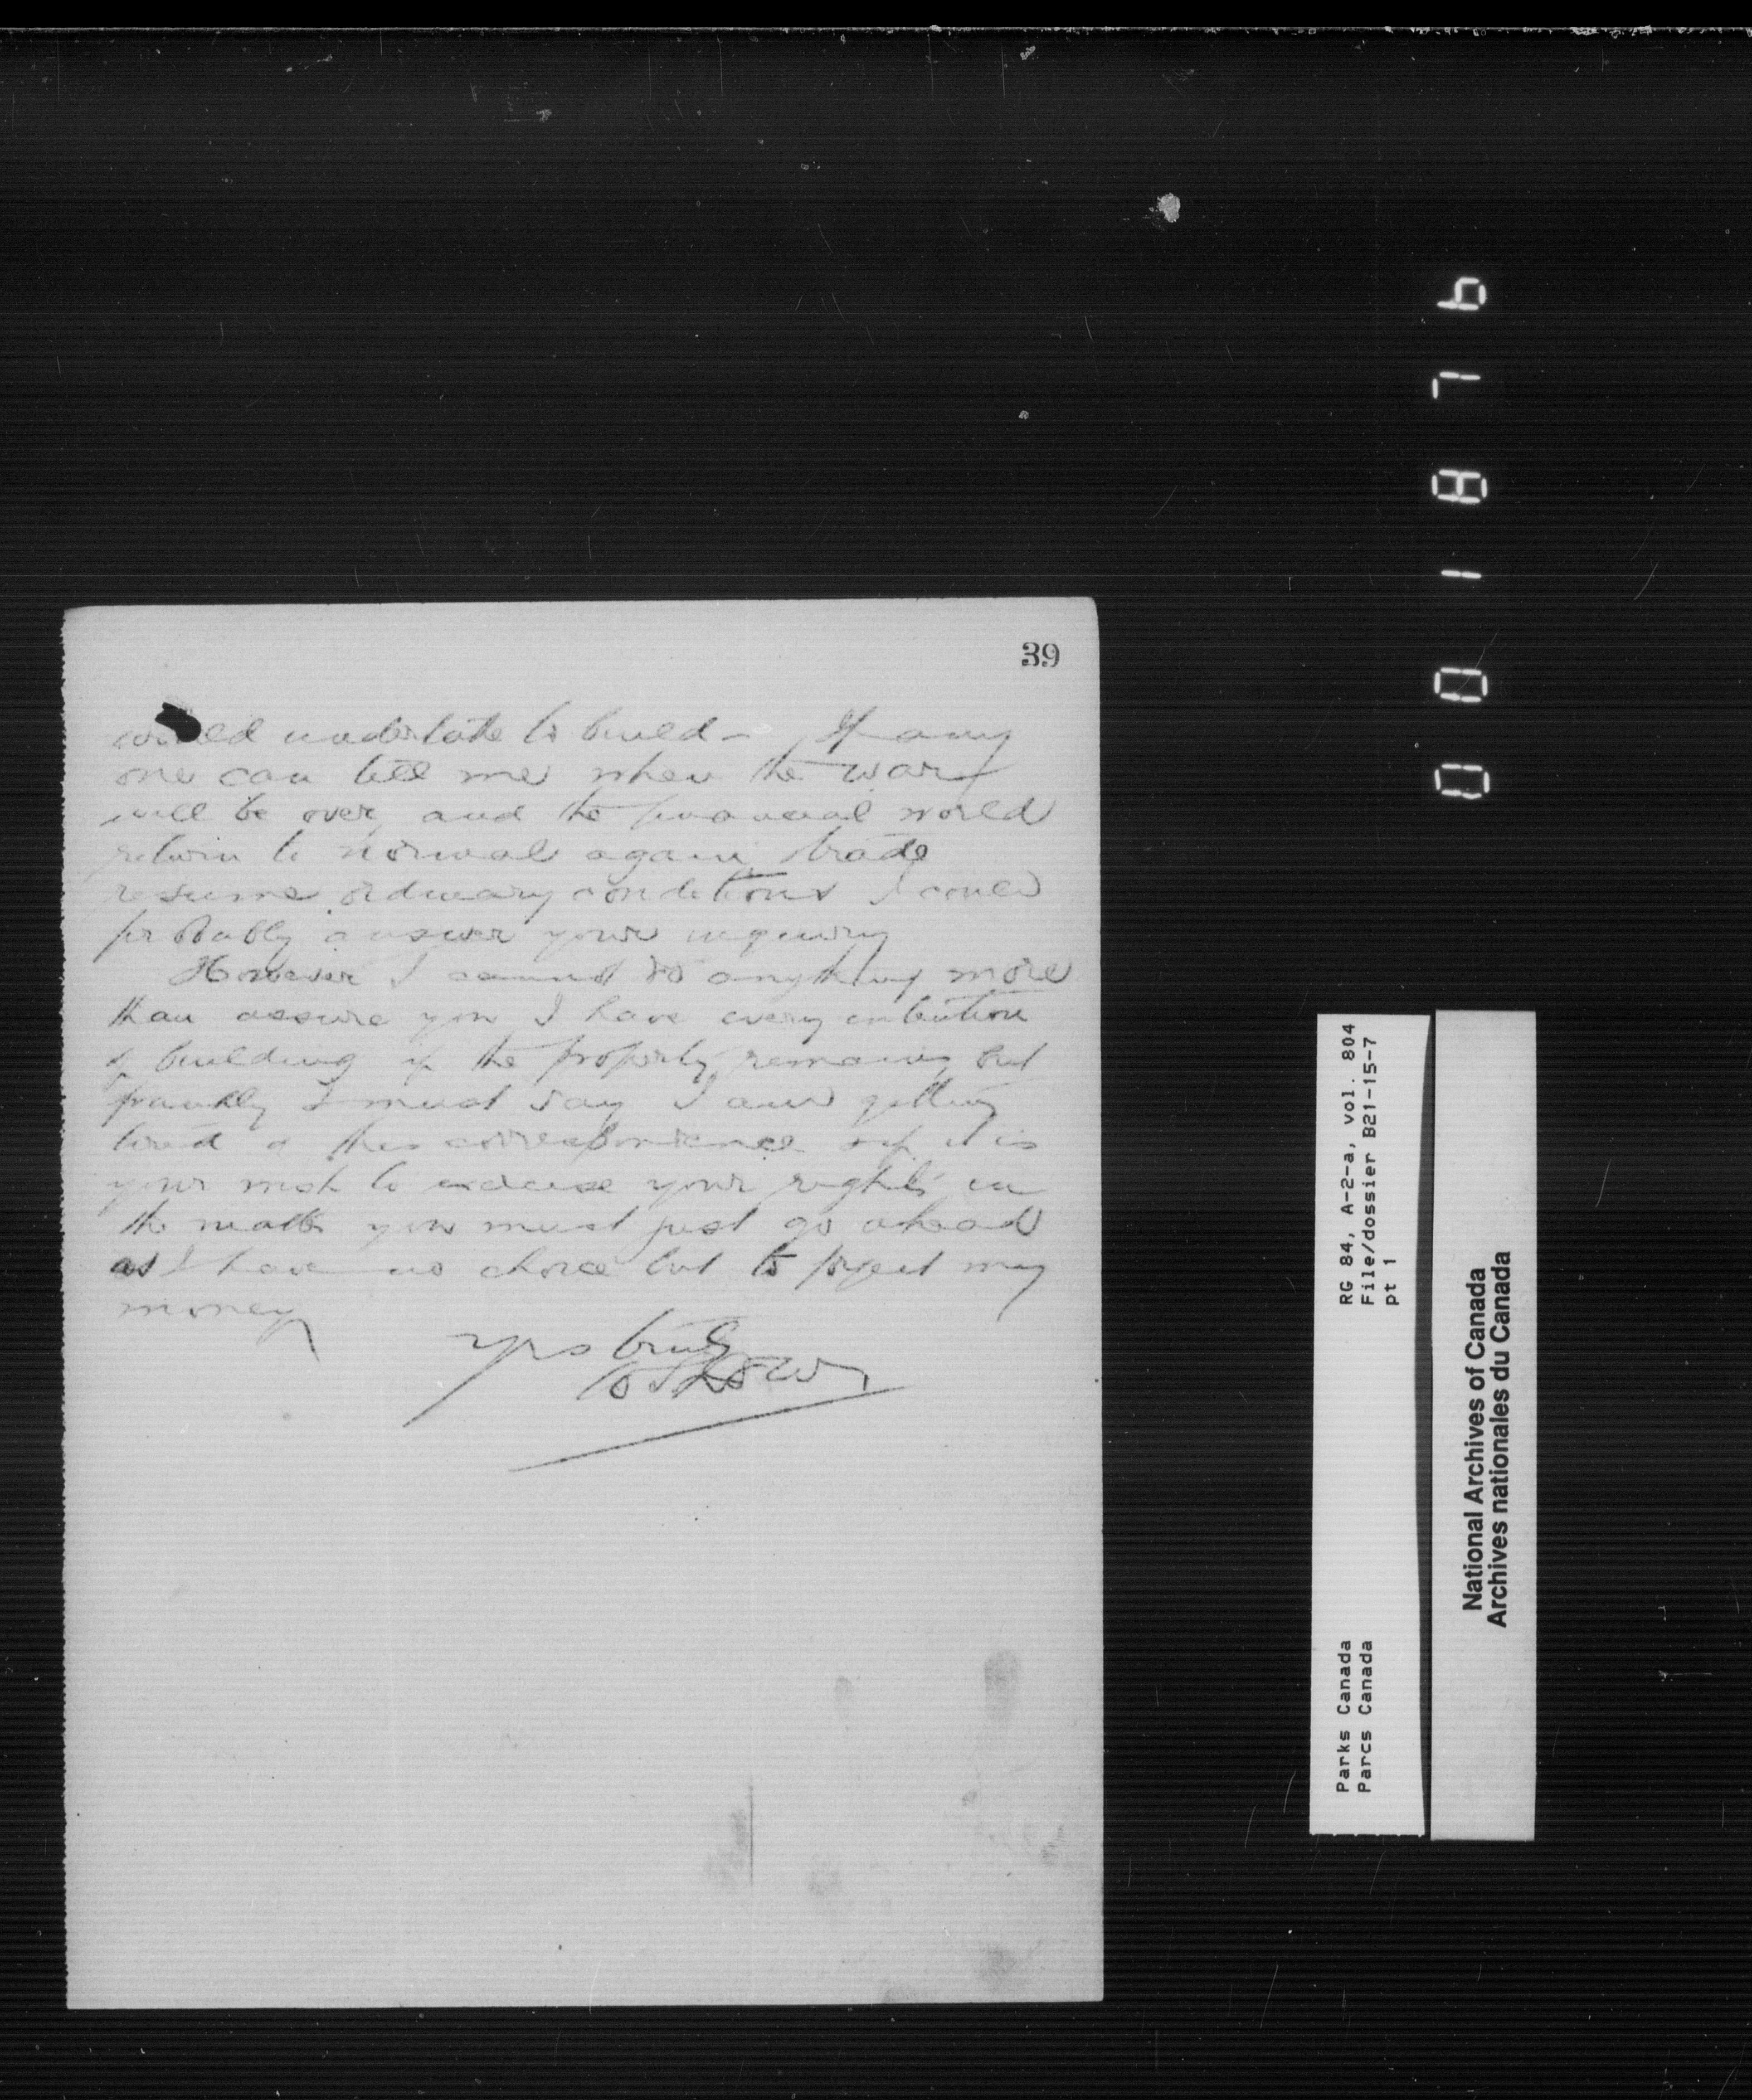 39
would undertake to build - If any
one can tell me when the war
will be over, and the financial world
return to normal again, trade
resume ordinary conditions I could
probably answer your inquiry
However I cannot do anything more
than assure you I have every intention
of building if the property remains, but
frankly I must say I am getting
tired o this correspondence & if it is
your wish to exercise your rights in
the matter you must just go ahead
as I have no choice but to forfeit my
money
Yrs truly
RG 84, A-2-a, vol. 804
File/dossier B21-15-7
pt 1
Parks Canada
Parcs Canada
National Archives of Canada
Archives nationales du Canada